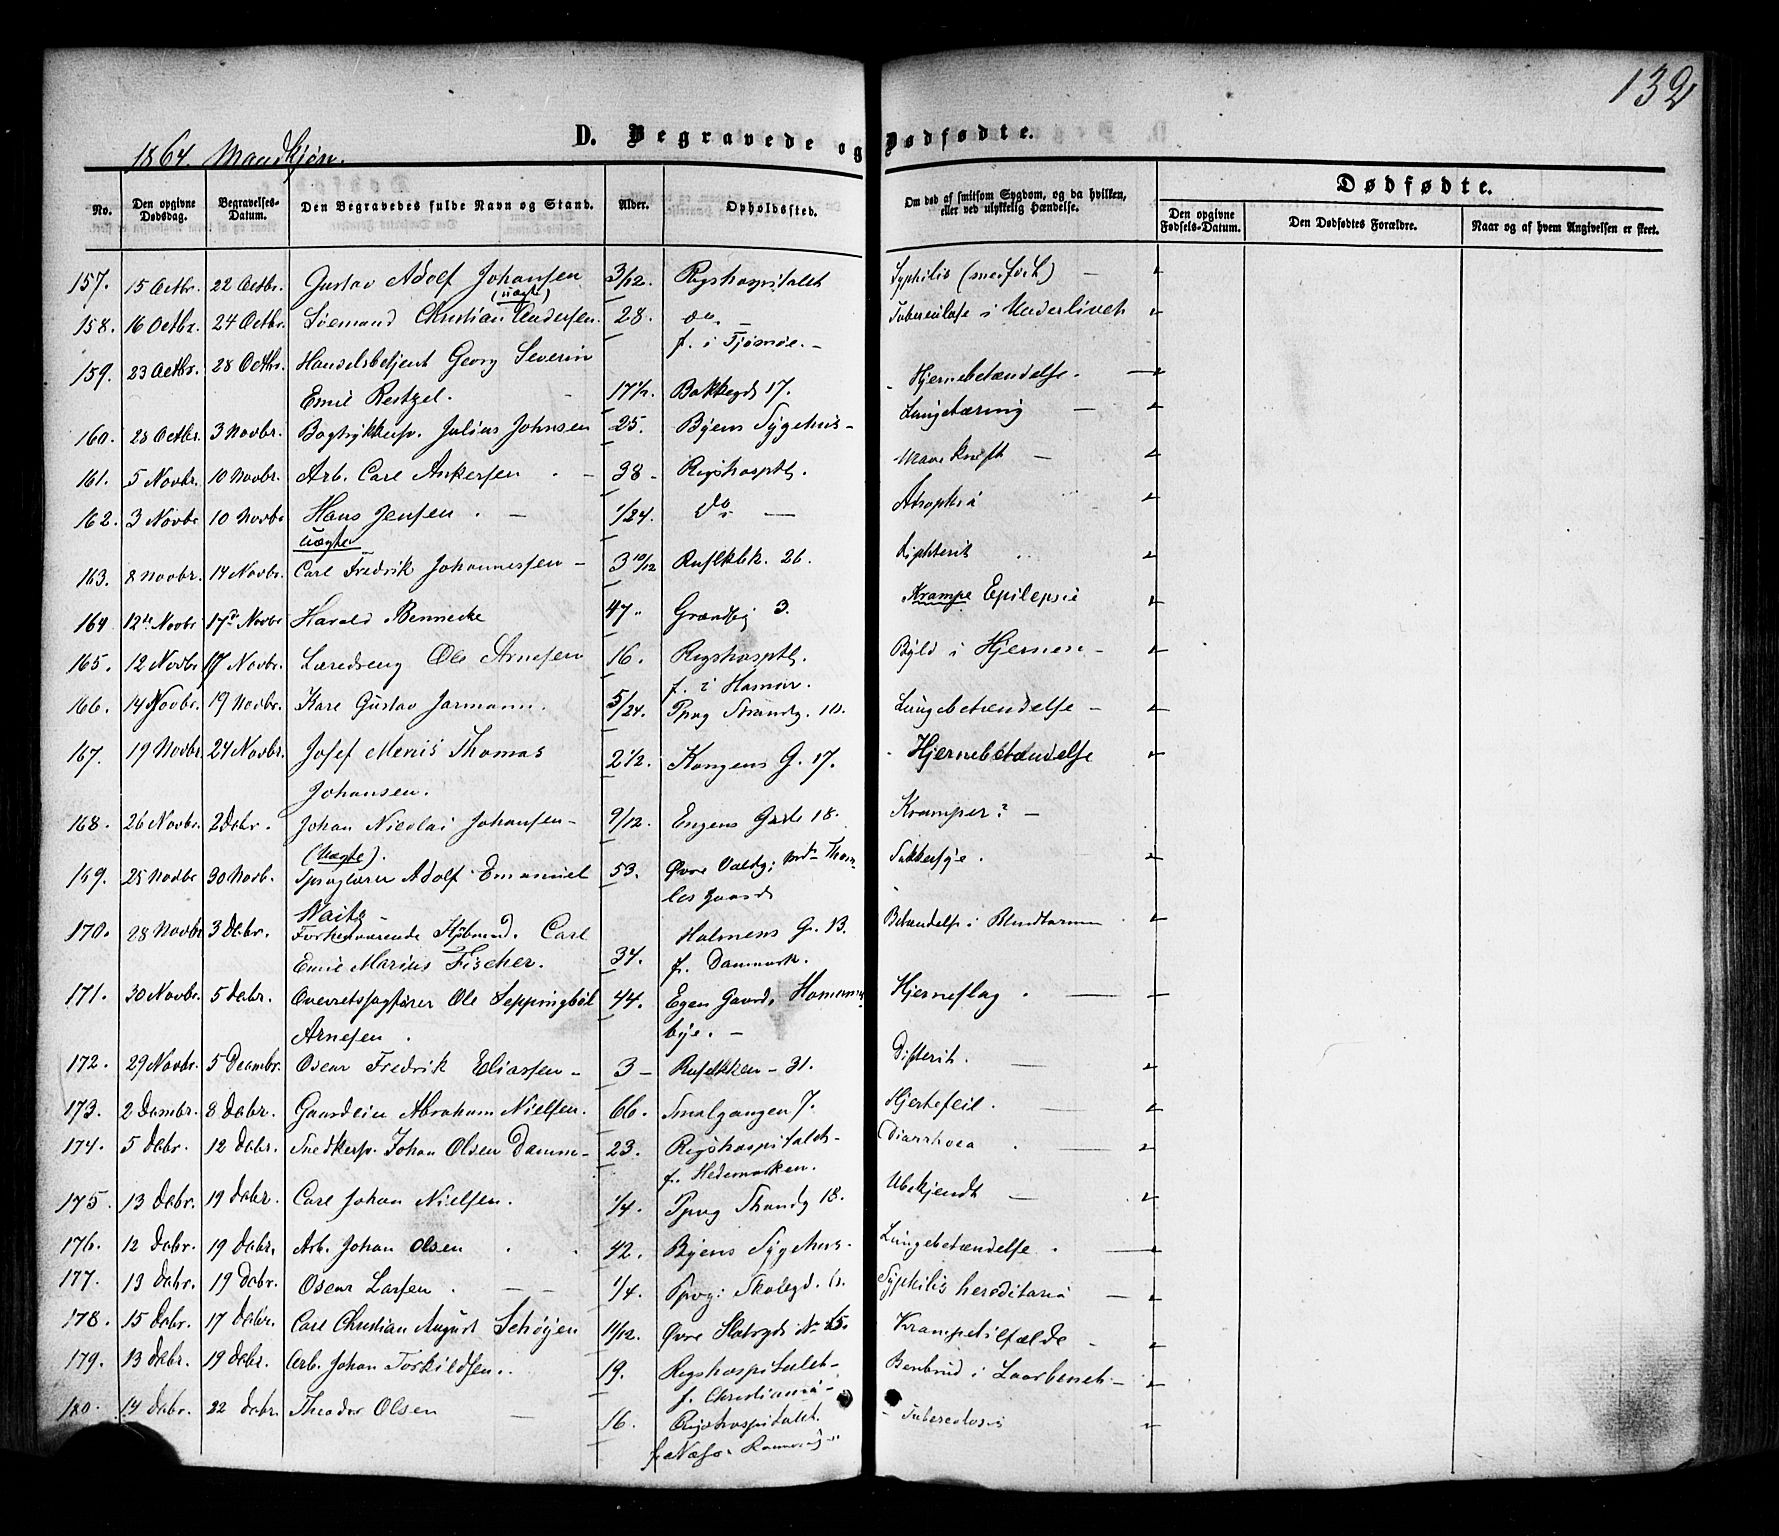 132
D. Begravede og Dødfødte.
1864. Mandkjøn.
No. Den opgivne Dødsdag. Begravelses-Datum. Den Begravedes fulde Navn og Stand. Alder. Opholdssted. Om død af smitsom Sygdom, og da hvilken, eller ved ulykkelig Hændelse. Dødfødte.
Den opgivne Fødsels-Datum. Den Dødfødtes Forældre. Naar og af hvem Angivelsen er skeet.
157. 15 Octbr. 22 Octbr. Gustav Adolf Johansen 3/12. Rigshospitalet Syphilis (medfødt) —
(uægte)
158. 16 Octbr. 24 Octbr. Sømand Christian Andersen. 28. do — Tuberculose i Underlivet
f. i Tjømøe. —
159. 23 Octbr. 28 Octbr. Handelsbetjent Georg Severin Hjernebetændelse.
Emil Restzel. 17 1/2. Bakkegd. 17.
160. 28 Octbr. 3 Novbr. Bogtrykkersv. Julius Johnsen 25. Byens Sygehus - Lungetæring —
161. 5 Novbr. 10 Novbr. Arb. Carl Ankersen - 38 - Rigshosptl. Mavekræft —
162. 3 Novbr 10 Novbr Hans Jensen. — 1/24. do — Atrophia
uægte
163. 8 Novbr. 14 Novbr. Carl Fredrik Johannessen - 3 10/12 Rusl.kbk. 26. Diphterit
164 12te Novbr 17de Novbr Harald Bennecke 47. Grændsg 3. Krampe Epilepsie
165. 12 Novbr 17 Novbr. Læredreng Ole Arnesen 16. Rigshosptl. Byld i Hjernen -
f. i Hamar.
166. 14 Novbr. 19 Novbr. Kare Gustav Jarmann. 5/24. Ppvg Strandg. 10. Lungebetændelse -
167. 19 Novbr. 24 Novbr. Josef Menis Thomas 2 1/2. Kongens G. 17. Hjernebetændelse
Johansen.
168. 26 Novbr. 2 Debr. Johan Nicolai Johansen - 9/12. Engens Gade 18. Kramper? —
(Uægte).
169. 25 Novbr 30 Novb. Sproglærer Adolf Emanuel 53. Øvre Voldg: Sukkersyge.
Naitz -
170. 28 Novbr 3 Debr. Forhenværende Carl Holmens G. 13. Betændelse i Blindtarmen
Emil Marius Fischer. 34. f. Danmark.
171. 30 Novbr. 5 Debr. Overretssagfører Ole Seppingbøl 44. Egen Gaard, Hammers- Hjerneslag.
Arnesen. bye. —
172. 29 Novbr. 5 Decmbr. Oscar Fredrik Eliassen - 3 - Ruseløkken - 31. Difterit.
173. 2 Decmbr. 8 Debr. Gaardeier Abraham Nielsen. 66. Smalgangen 7. Hjertefeil.
174. 5 Debr. 12 Debr. Snedkersv. Johan Olsen Damm - 23. Rigshospitalet - Diarrhoea
f. Hedemarken.
175. 13 Debr. 19 Debr. Carl Johan Nielsen. 1/4. Ppvg Strandg 18. Ubekjendt —
176. 12 Debr. 19 Debr. Arb. Johan Olsen 42. Byens Sygehus - Lungebetændelse.
177. 13 Debr. 19 Debr. Oscar Larsen. — 1/4. Ppvg: Skolegd. 6. Syphilis hereditaria —
178. 15 Debr. 17 Debr. Carl Christian August Schøyen 11/12. Øvre Slotsgd. No 15. Krampetilfælde -
179. 13 Debr. 19 Debr. Arb. Johan Torkildsen. 19. Rigshospitalet - Benbrud i Laarbenet -
f. Christiania -
180. 14 Debr. 22 Debr. Theodor Olsen — 16. Rigshospitalet. - Tuberculosis
f. Næs